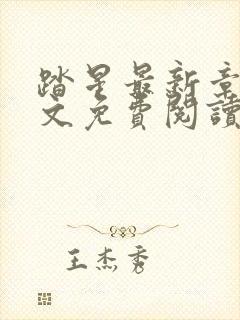 踏星最新章
文免費閱讀
王杰秀